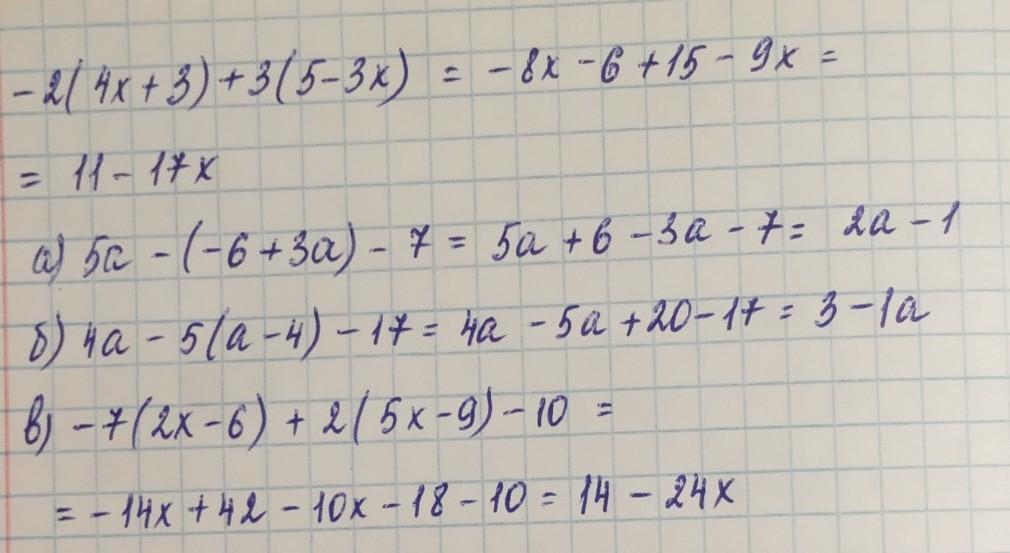 -2(4x+3)+3(5-3x) = -8x-6+15-9x =
= 11-17x
а) 5a-(-6+3a)-7 = 5a+6-3a-7 = 2a-1
б) 4a-5(a-4)-17 = 4a-5a+20-17 = 3-1a
в) -7(2x-6)+2(5x-9)-10 =
= -14x+42-10x-18-10 = 14-24x